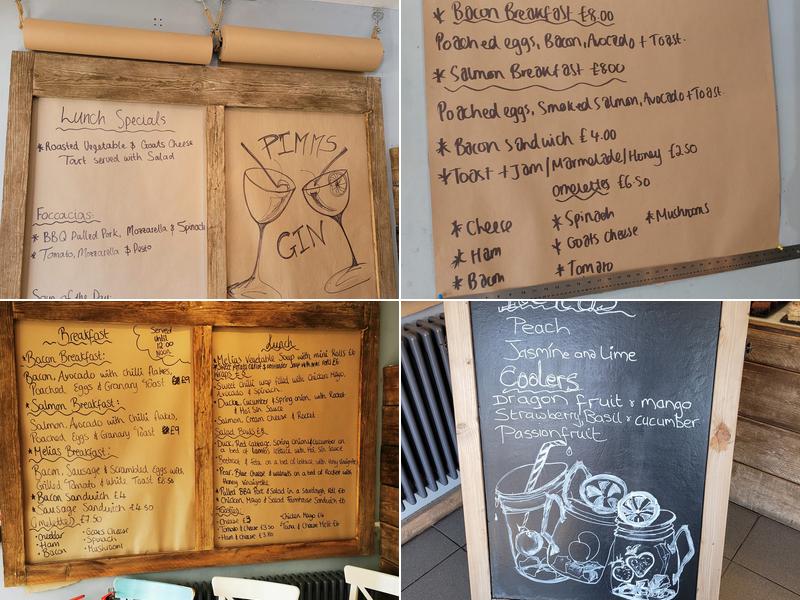 Lunch Specials
* Roasted Vegetable & Goats Cheese
Tart served with Salad
Foccacias:
* BBQ Pulled Pork, Mozzarella & Spinach
* Tomato, Mozzarella & Pesto
Soup of the Day:
PIMMS
GIN
* Bacon Breakfast £8.00
Poached eggs, Bacon, Avocado + Toast.
* Salmon Breakfast £8.00
Poached eggs, Smoked Salmon, Avocado + Toast.
* Bacon Sandwich £4.00
* Toast + Jam/Marmalade/Honey £2.50
omelettes £6.50
* Cheese
* Ham
* Bacon
* Spinach
* Goats Cheese
* Tomato
* Mushrooms
Breakfast
Served
Until
12.00
Noon
* Bacon Breakfast:
Bacon, Avocado with Chilli flakes,
Poached Eggs & Granary Toast £9
* Salmon Breakfast:
Salmon, Avocado with Chilli flakes,
Poached Eggs & Granary Toast £9
* Melias Breakfast:
Bacon, Sausage & Scrambled Eggs with
Grilled Tomato & White Toast £8.50
* Bacon Sandwich £4
* Sausage Sandwich £4.50
Omelettes £7.50
• Cheddar
• Ham
• Bacon
• Goats Cheese
• Spinach
• Mushroom
Lunch
* Melias Vegetable Soup with mini Rolls £6
Wraps £8
* Sweet Chilli wrap filled with Chicken Mayo,
Avocado & Spinach
* Duck, Cucumber & Spring onion, with Rocket
& Hoi Sin Sauce
* Salmon, Cream Cheese & Rocket
Salad Bowls £8
* Duck, Red Cabbage, Spring Onion/Cucumber on
a bed of Lambs lettuce with Hoi Sin Sauce
* Beetroot & Feta on a bed of lettuce with
* Pear, Blue Cheese & Walnuts on a bed of Rocket with
Honey Vinaigrette
* Pulled BBQ Pork & Salad in a Sourdough Roll £6
* Chicken, Mayo & Salad Farmhouse Sandwich £6
Toasties
• Cheese £3
• Tomato & Cheese £3.50
• Ham & Cheese £3.80
• Chicken Mayo £4
• Tuna & Cheese Melt £6
Peach
Jasmine and Lime
Coolers
Dragon fruit & mango
Strawberry, Basil & cucumber
Passionfruit